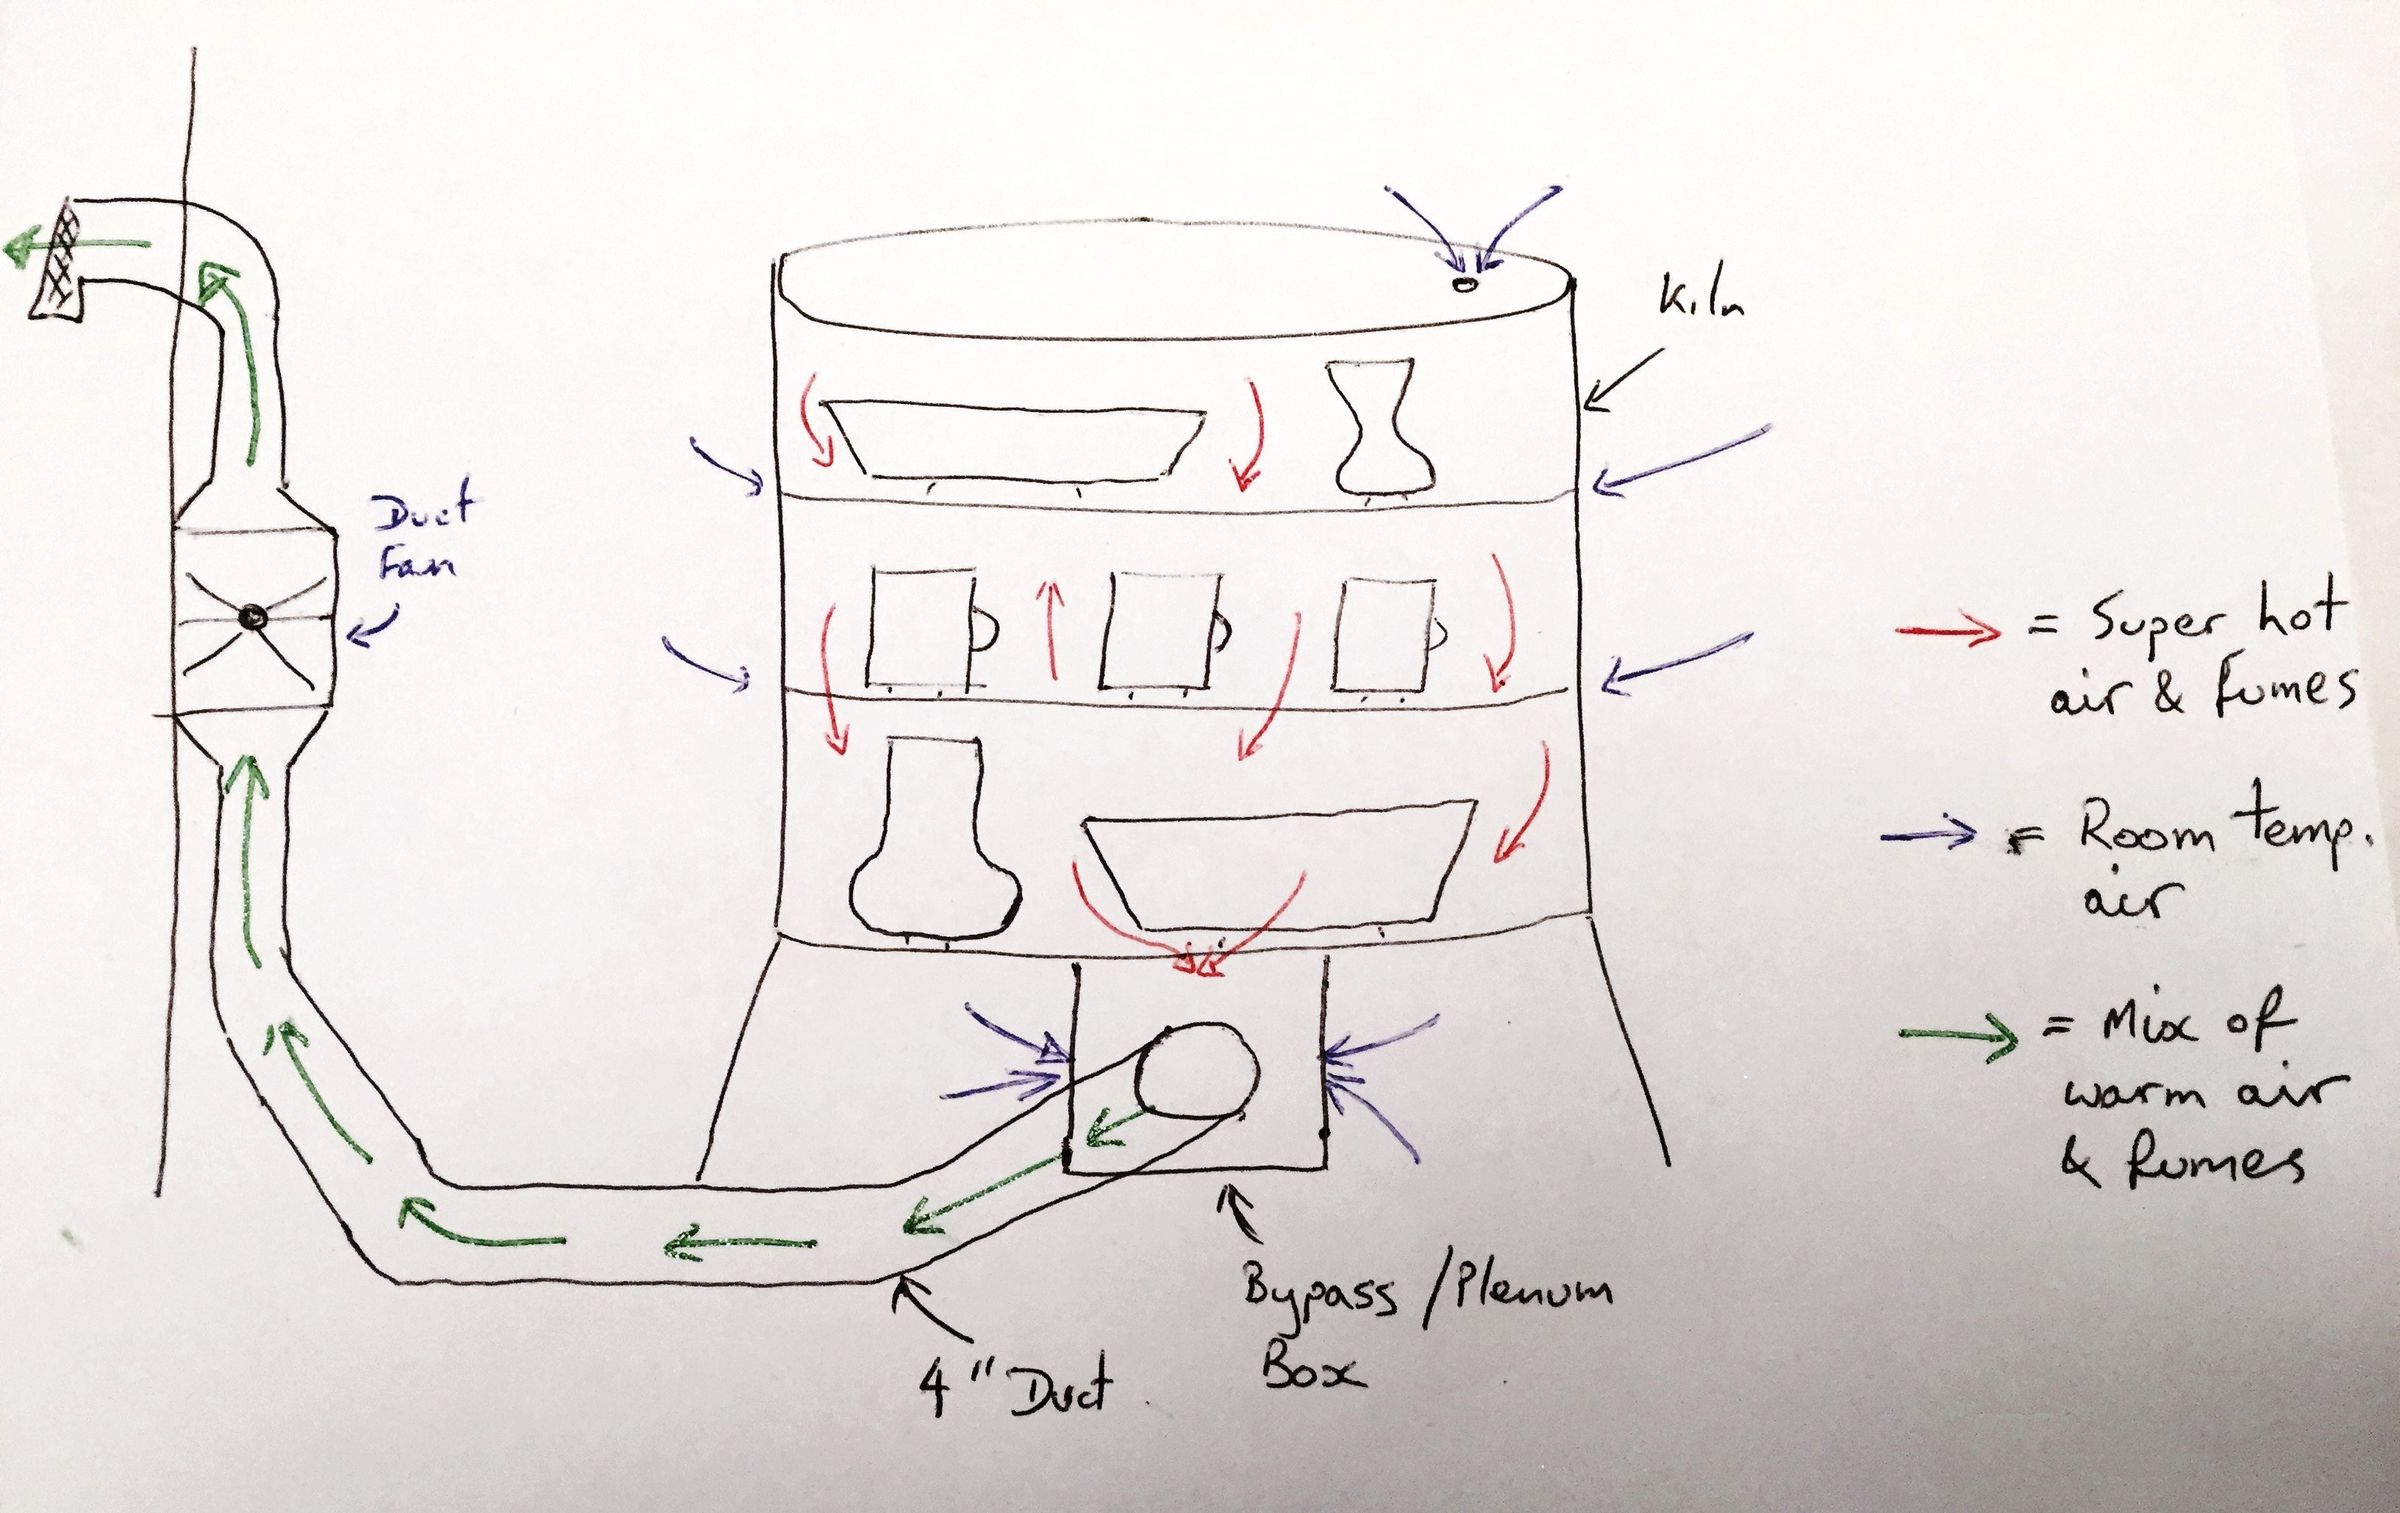 Kiln
Duct
Fan
= Super hot
air & fumes
= Room temp.
air
= Mix of
warm air
& fumes
Bypass / Plenum
Box
4" Duct